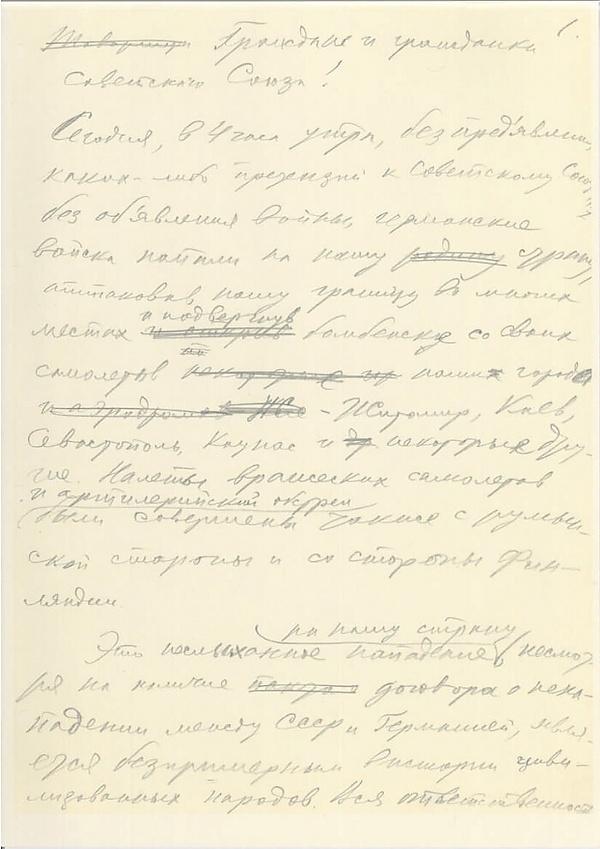 1.
Товарищи Граждане и гражданки
Советского Союза!
Сегодня, в 4 часа утра, без предъявления
каких-либо претензий к Советскому Союзу,
без объявления войны, германские
войска напали на нашу родину страну,
аттаковав, нашу границу во многих
и подвергнув
местах бомбежке со своих
самолетов некоторые из наших города
и аэродромов - Житомир, Киев,
Севастополь, Каунас и др некоторые дру-
гие. Налеты вражеских самолетов
и артилерийский обстрел
были совершены также с румын-
ской стороны и со стороны Фин-
ляндии.
на нашу страну
Это неслыханное нападение, несмот-
ря на наличие договора о нена-
падении между СССР и Германией, явля-
ется безпримерным в истории циви-
лизованных народов. Вся ответственность